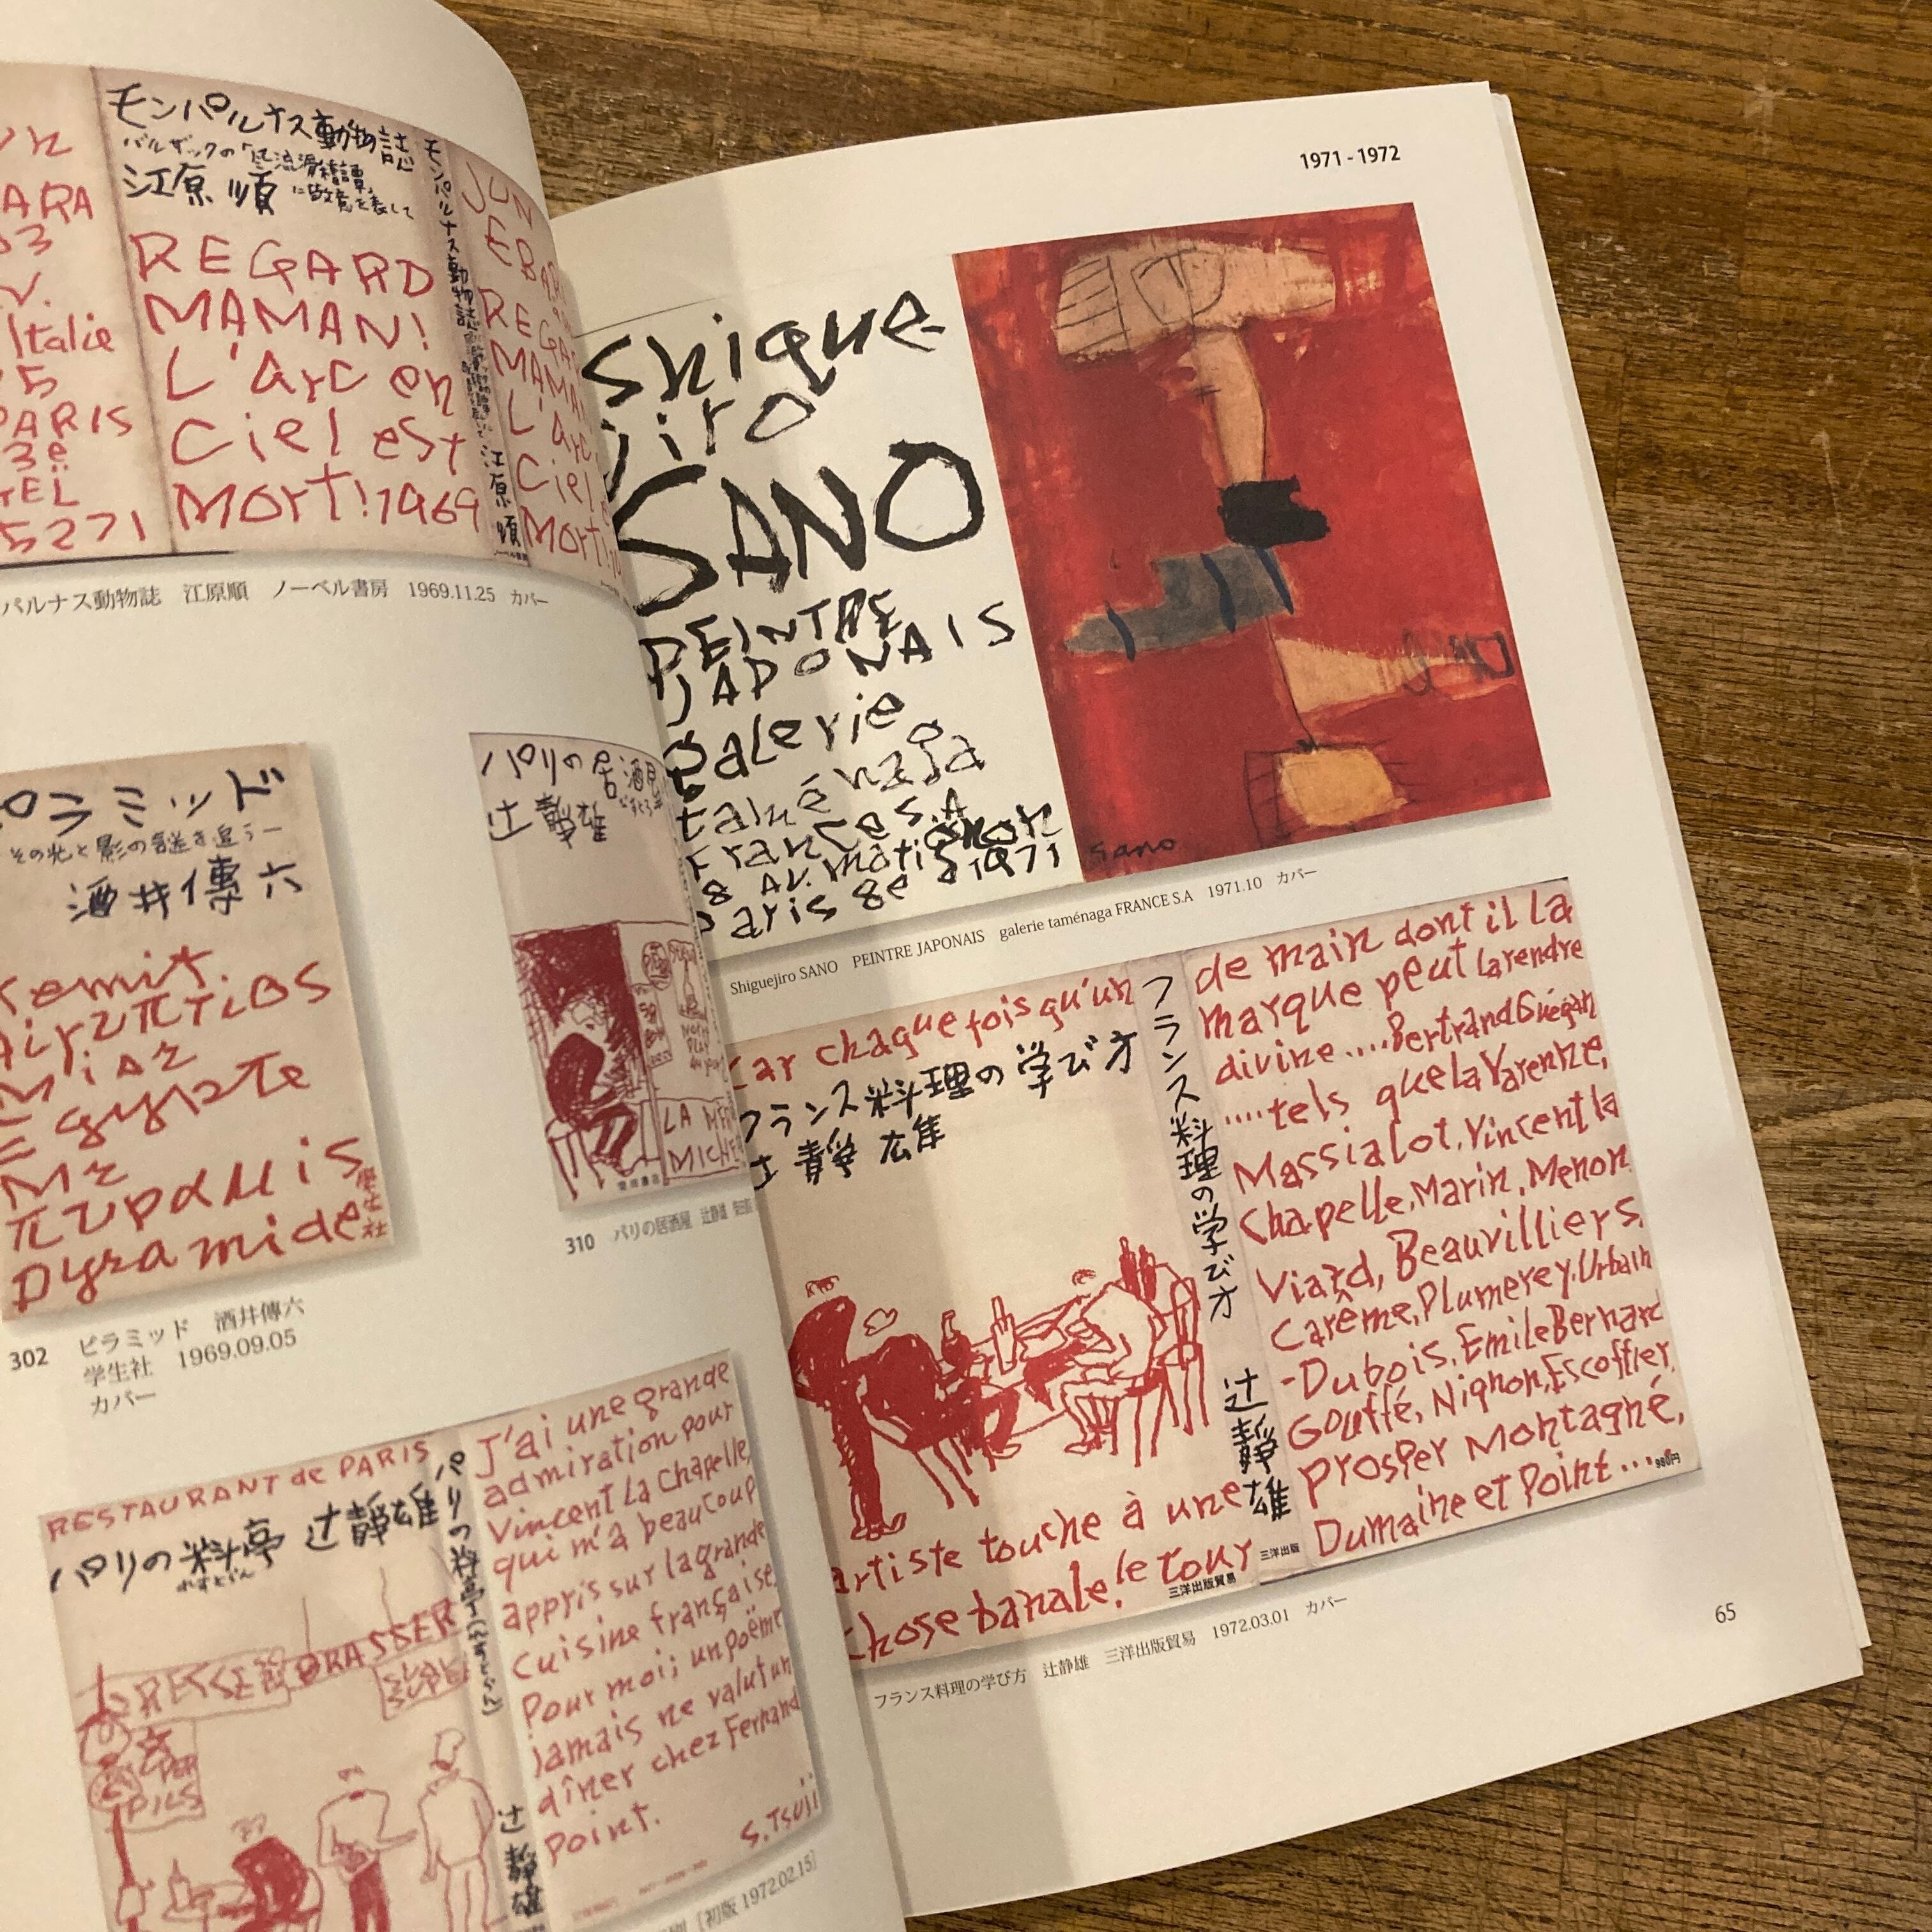 モンパルナス動物誌
バルザックの「風流滑稽譚」
に敬意を表して
江原順
REGARD
MAMAN!
L'Arc en
Ciel est
Mort! 1969
モンパルナス動物誌
江原順
JUN
EBA
REGA
MAMA
L'Arc
Ciel
Mort!
ARA
03
V.
Italie
PARIS
3e
5271
パルナス動物誌 江原順 ノーベル書房 1969.11.25 カバー
ピラミッド
その光と影の謎を追う
酒井傳六
Kemit
Egypte
πυραμις
pyramide
学生社
302 ピラミッド 酒井傳六
学生社 1969.09.05
カバー
パリの居酒屋
辻静雄
LA MÈR
MICHE
柴田書店
310 パリの居酒屋 辻静雄
RESTAURANT de PARIS
パリの料亭 辻静雄
れすとらん
BRASSER
PILS
パリの料亭(れすとらん)
辻静雄
J'ai une grande
admiration pour
Vincent La Chapelle,
qui m'a beaucoup
appris sur la grande
cuisine française.
Pour moi; un poème
jamais ne valut un
dîner chez Fernand
Point.
S. Tsuji
[初版 1972.02.15]
1971 - 1972
Shigue
jiro
SANO
PEINTRE
JAPONAIS
Galerie
taménaga
France S.A
18 AV. Matignon
Paris 8e 1971
SANO
sano
Shiguejiro SANO PEINTRE JAPONAIS galerie taménaga FRANCE S.A 1971.10 カバー
Car chaque fois qu'un
フランス料理の学び方
辻静雄
artiste touche à une
chose banale, le tour
三洋出版貿易
フランス料理の学び方
辻静雄
三洋出版
de main dont il La
marque peut la rendre
divine....Bertrand Guégan
....tels que La Varenne,
Massialot, Vincent la
Chapelle, Marin, Menon
Viard, Beauvilliers,
Carême, Plumerey, Urbain
-Dubois, Emile Bernard
Gouffé, Nignon, Escoffier,
Prosper Montagné,
Dumaine et Point...
980円
フランス料理の学び方 辻静雄 三洋出版貿易 1972.03.01 カバー
65